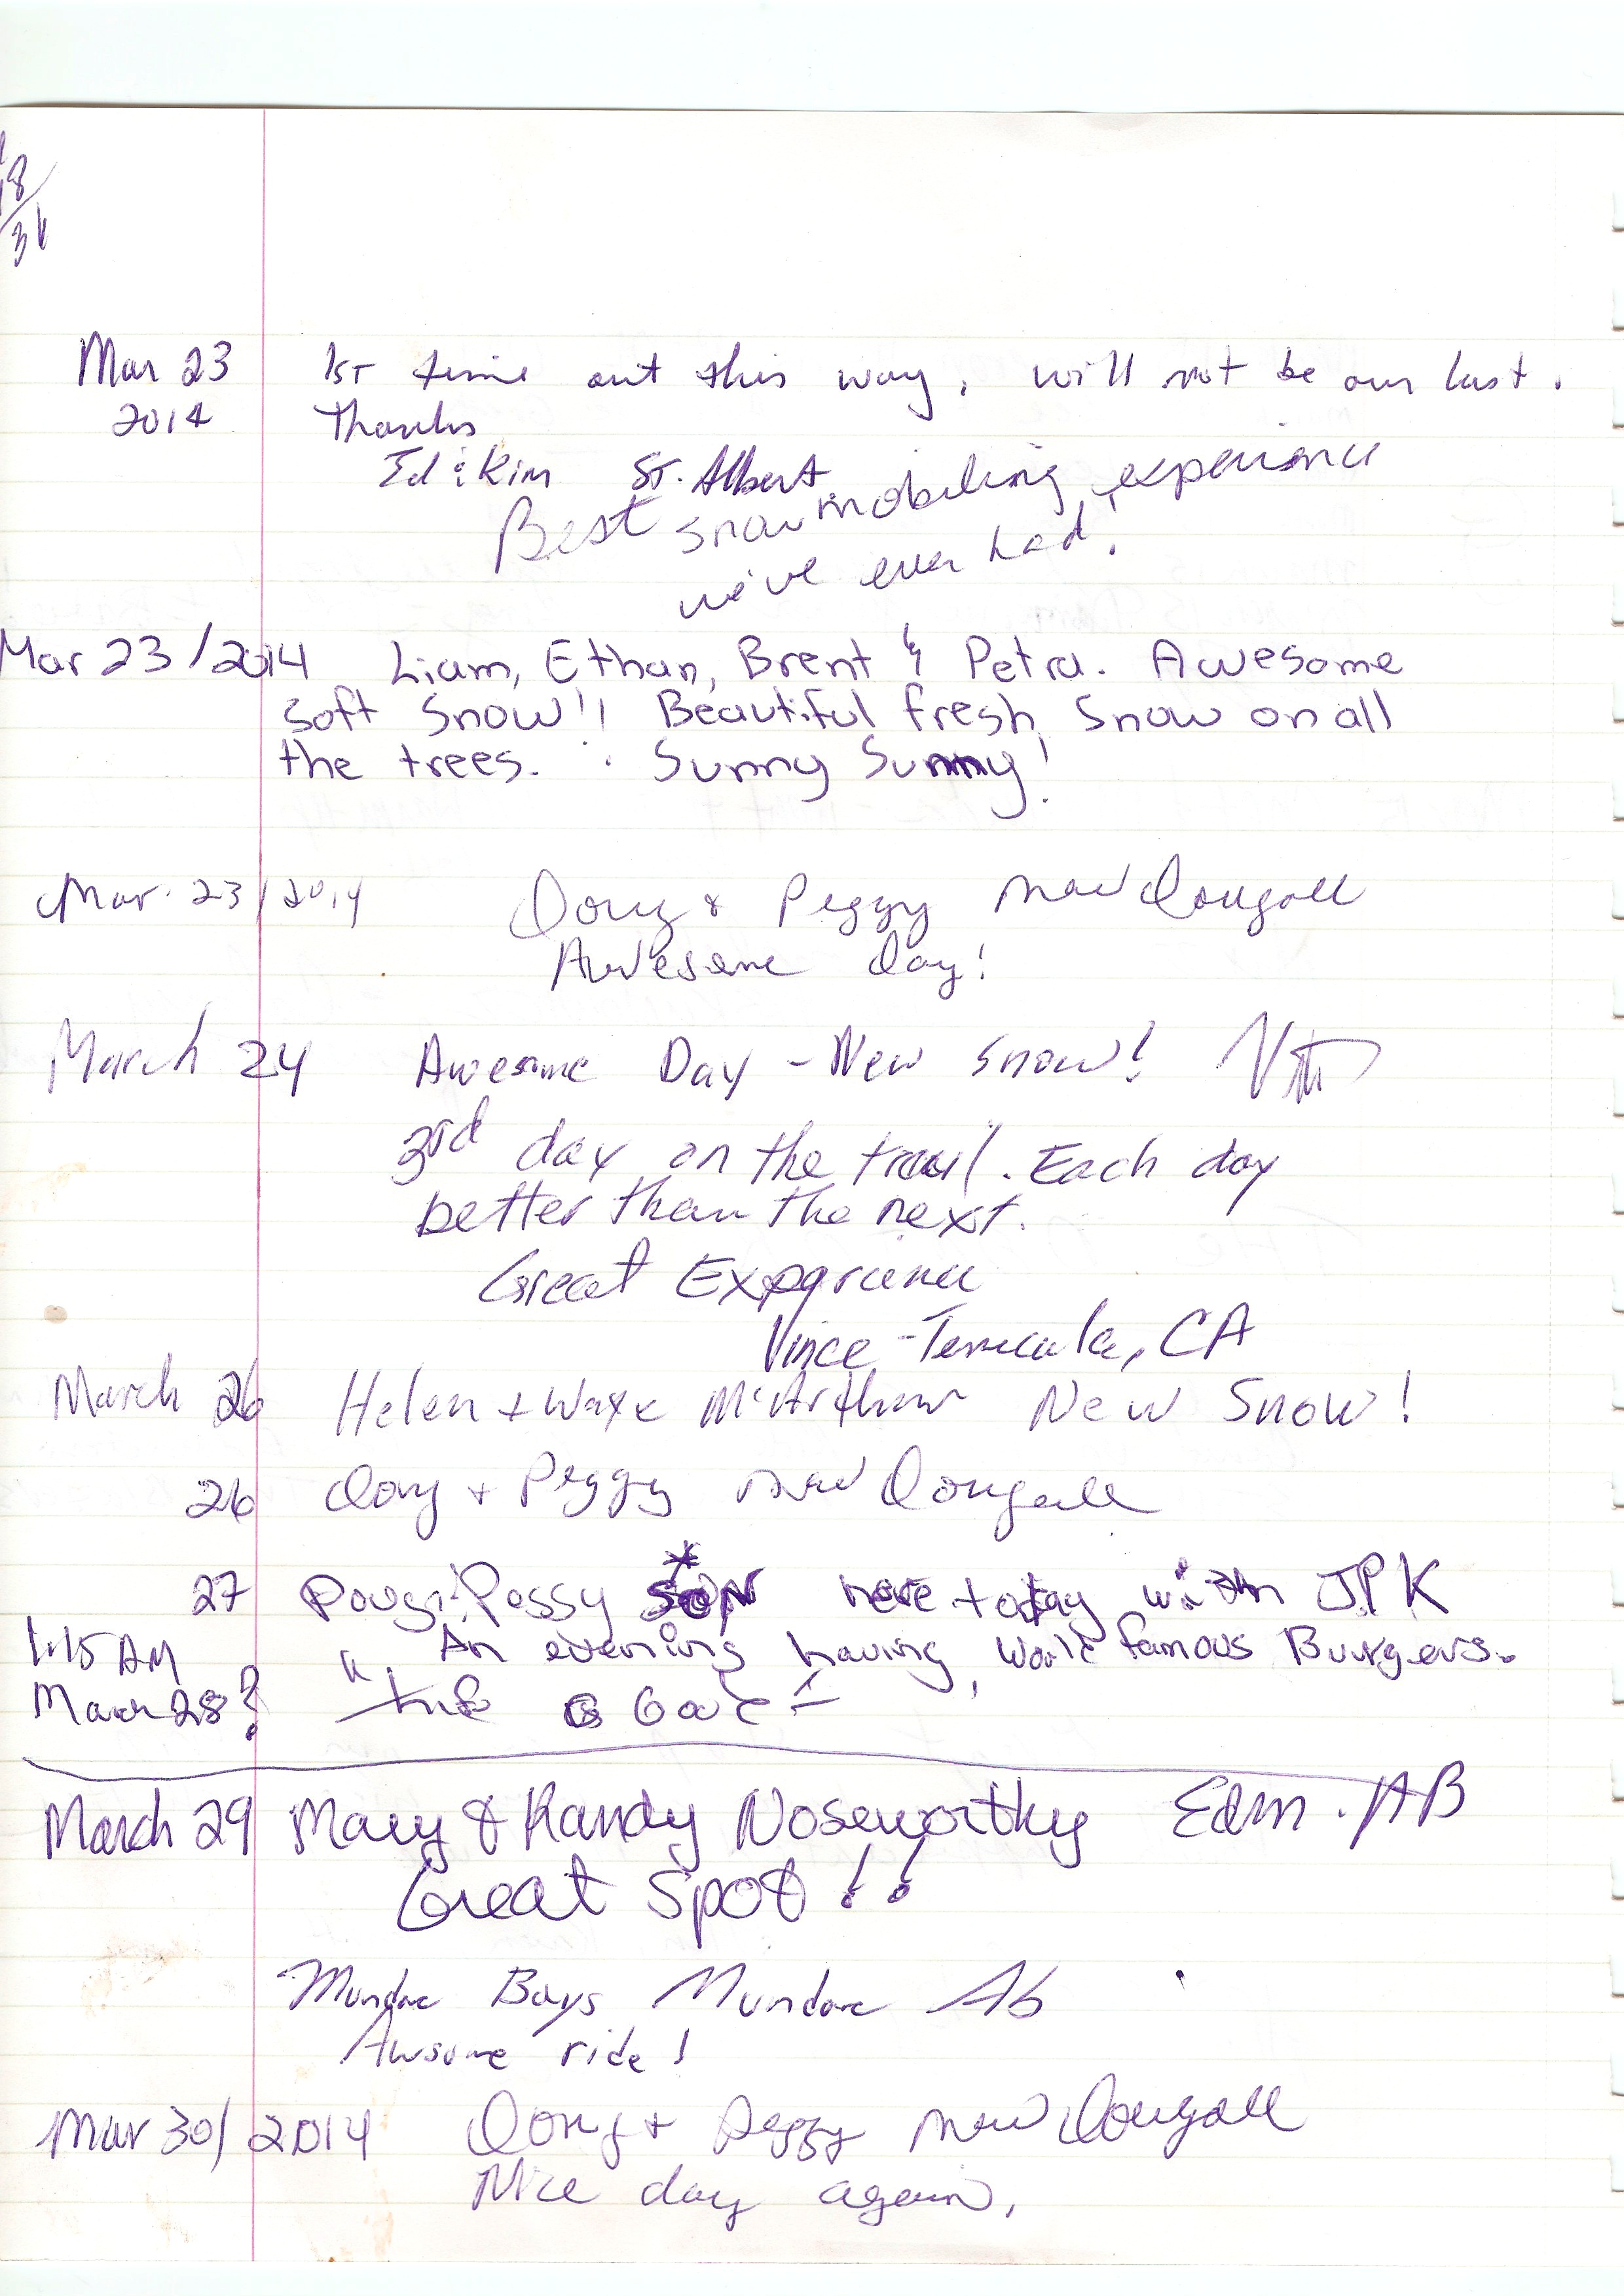 18/31
Mar 23 1st time out this way, will not be our last.
2014 Thanks
Ed & Kim St. Albert
Best snowmobiling experience
we've ever had!
Mar 23/2014 Liam, Ethan, Brent & Petra. Awesome
soft snow!! Beautiful fresh snow on all
the trees. Sunny Sunny!
Mar. 23/2014 Doug & Peggy MacDougall
Awesome day!
March 24 Awesome Day - New Snow!
3rd day on the trail. Each day
better than the next.
Great Experience
Vince - Temecula, CA
March 26 Helen + McArthur New Snow!
26 Doug + Peggy MacDougall
27 Doug & Peggy here today with JPK
1:15 AM " An evening having World famous Burgers.
March 28?
March 29 Mary & Randy Noseworthy Edm. AB
Great Spot!!
Mundare Boys Mundare Ab
Awsome ride!
Mar 30/2014 Doug + Peggy MacDougall
Nice day again.